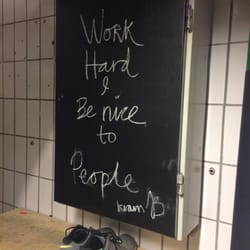 Work
Hard
&
Be nice
to
People